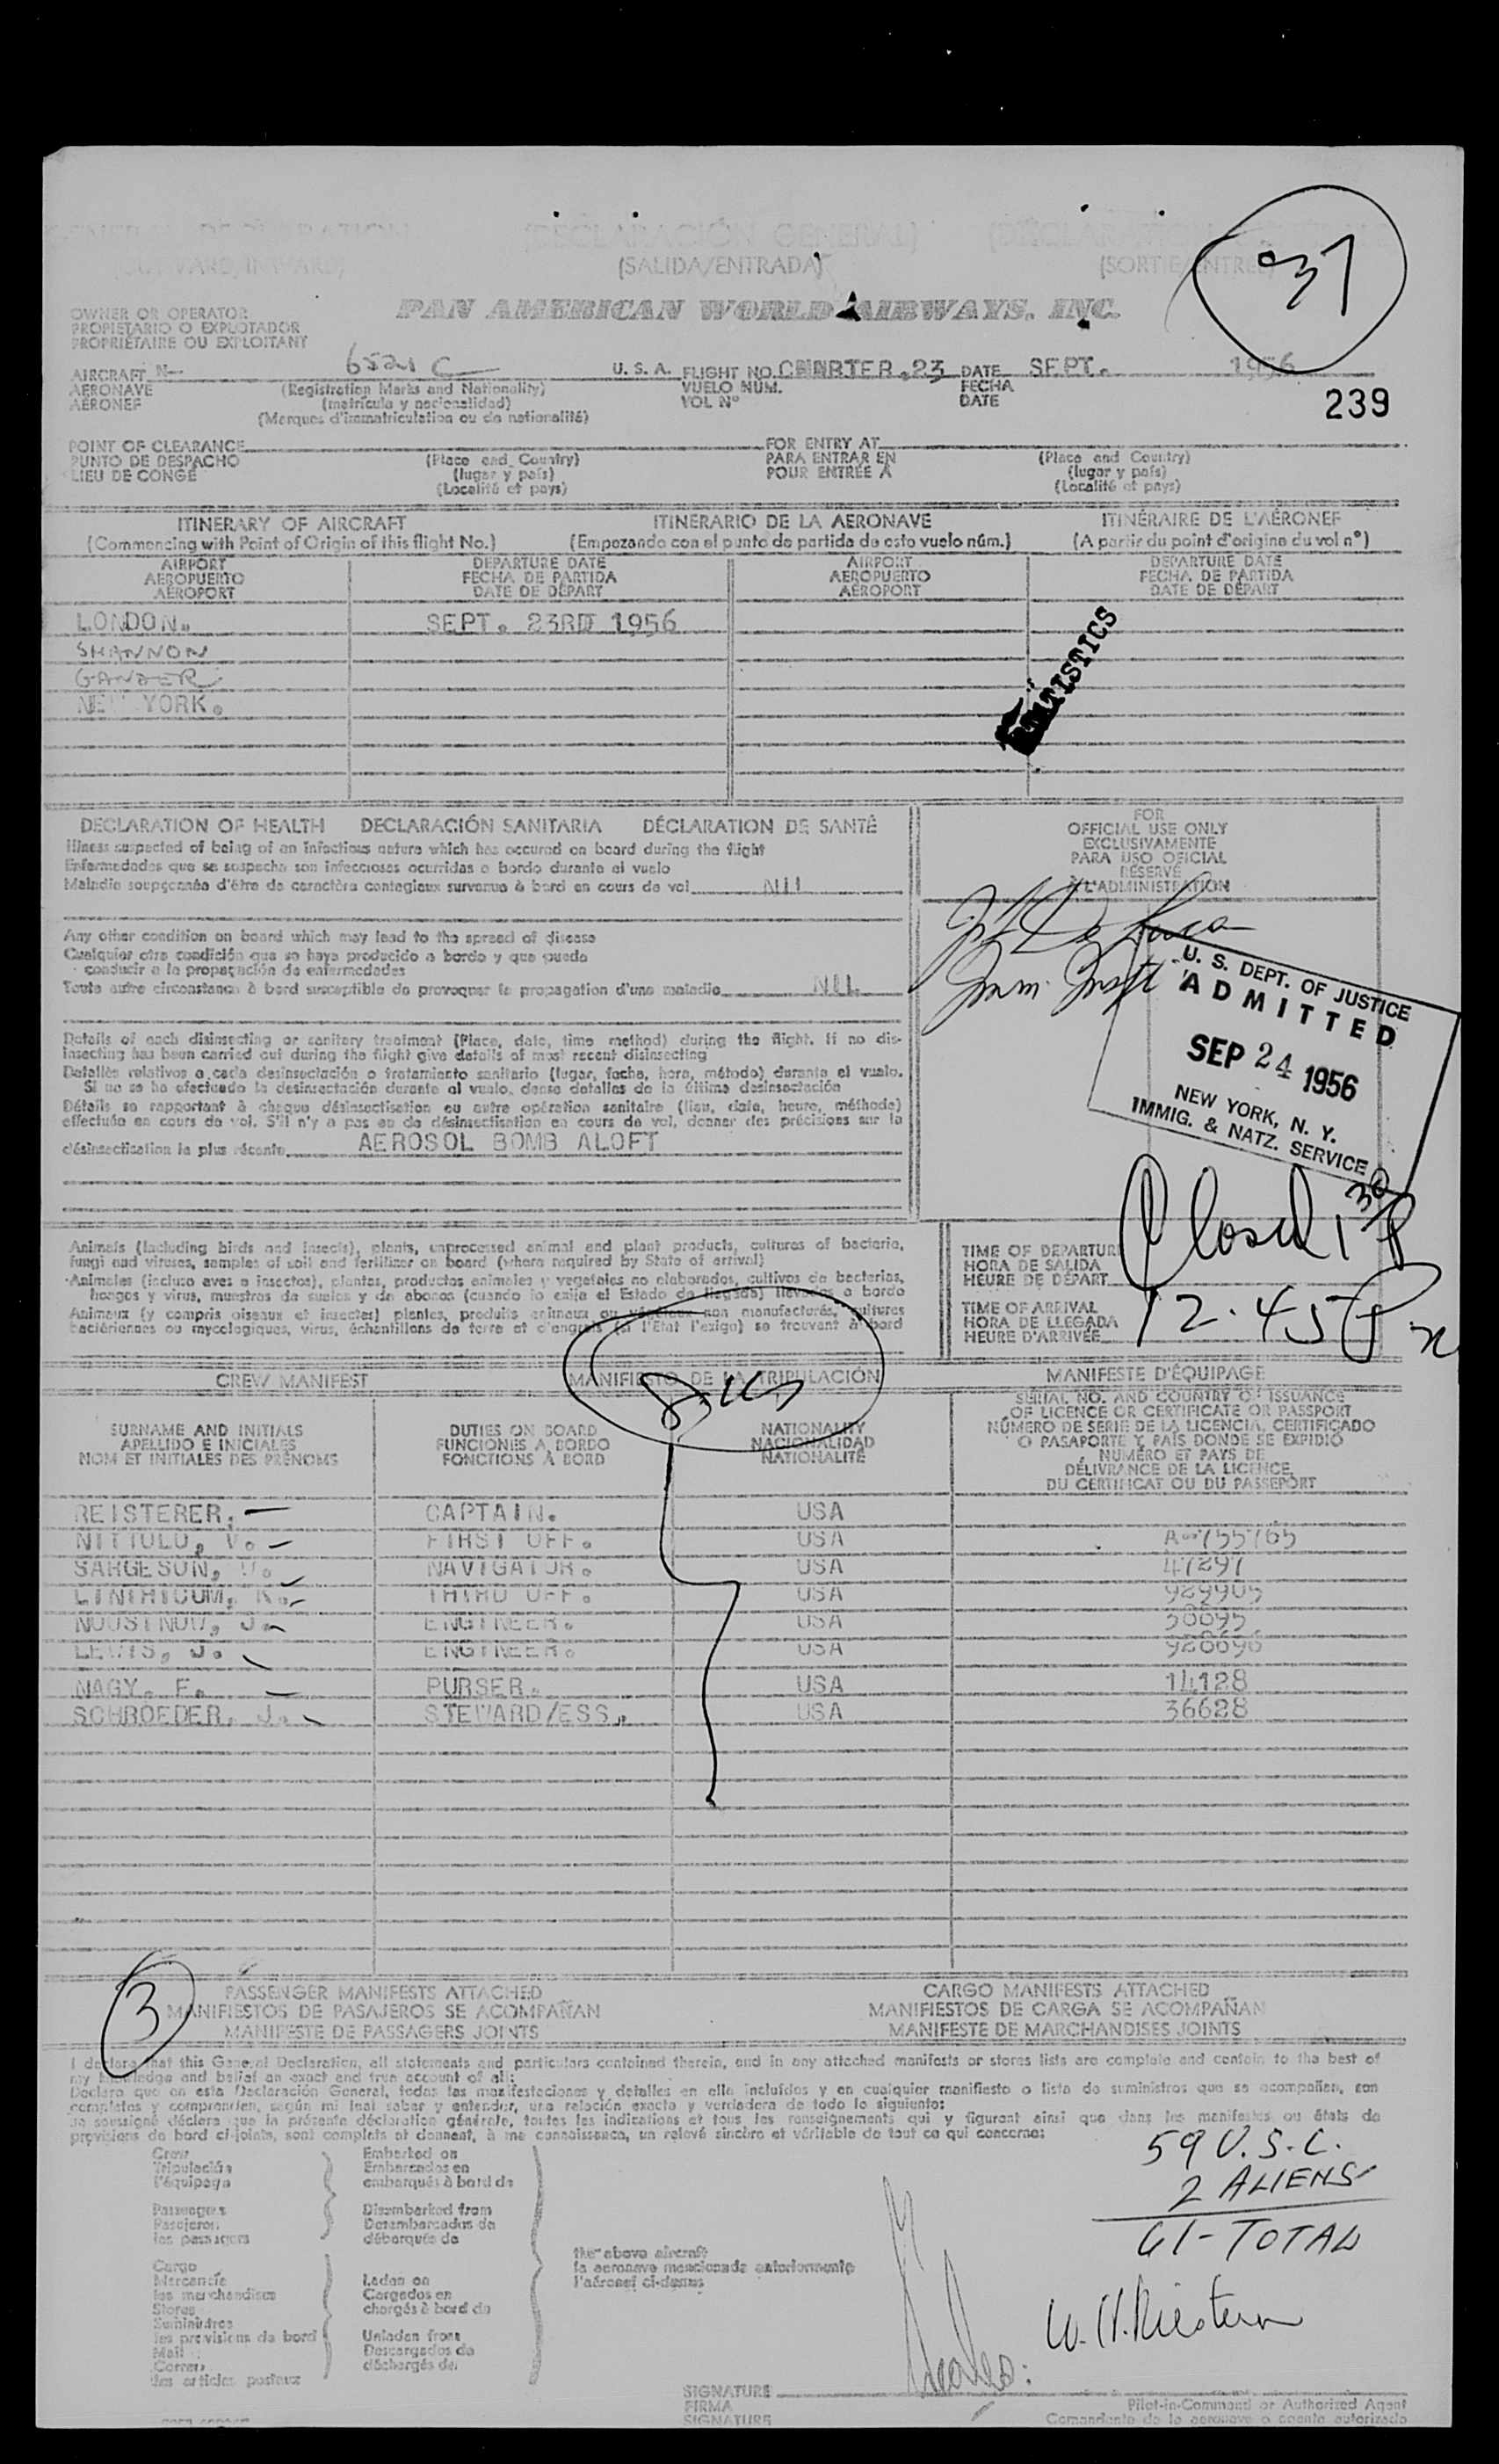 GENERAL DECLARATION (DECLARACIÓN GENERAL)
(OUTWARD/INWARD) (SALIDA/ENTRADA) (SORTIE/ENTRÉE)
37
OWNER OR OPERATOR
PROPIETARIO O EXPLOTADOR
PROPRIÉTAIRE OU EXPLOITANT
PAN AMERICAN WORLD AIRWAYS, INC.
AIRCRAFT N- 6521 C U. S. A. FLIGHT NO. 23 DATE SEPT. 1956
AERONAVE (Registration Marks and Nationality) VUELO NÚM. FECHA
AÉRONEF (matrícula y nacionalidad) VOL Nº DATE
(Marques d'immatriculation ou de nationalité)
239
POINT OF CLEARANCE FOR ENTRY AT
PUNTO DE DESPACHO (Place and Country) PARA ENTRAR EN (Place and Country)
LIEU DE CONGÉ (lugar y país) POUR ENTRÉE A (lugar y país)
(Localité et pays) (Localité et pays)
ITINERARY OF AIRCRAFT ITINERARIO DE LA AERONAVE ITINÉRAIRE DE L'AÉRONEF
(Commencing with Point of Origin of this flight No.) (Empezando con el punto de partida de este vuelo núm.) (A partir du point d'origine du vol nº)
AIRPORT DEPARTURE DATE AIRPORT DEPARTURE DATE
AEROPUERTO FECHA DE PARTIDA AEROPUERTO FECHA DE PARTIDA
AÉROPORT DATE DE DÉPART AÉROPORT DATE DE DÉPART
LONDON. SEPT. 23RD 1956
SHANNON
GANDER
NEW YORK.
STATISTICS
DECLARATION OF HEALTH DECLARACIÓN SANITARIA DÉCLARATION DE SANTÉ
Illness suspected of being of an infectious nature which has occured on board during the flight
Enfermedades que se sospecha son infecciosas ocurridas a bordo durante el vuelo
Maladie soupçonnée d'être de caractère contagieux survenue à bord en cours de vol NIL
Any other condition on board which may lead to the spread of disease
Cualquier otra condición que se haya producido a bordo y que pueda
conducir a la propagación de enfermedades
Toute autre circonstance à bord susceptible de provoquer la propagation d'une maladie NIL
Details of each disinsecting or sanitary treatment (Place, date, time method) during the flight. If no dis-
insecting has been carried out during the flight give details of most recent disinsecting
Detalles relativos a cada desinsectación o tratamiento sanitario (lugar, fecha, hora, método) durante el vuelo.
Si no se ha efectuado la desinsectación durante el vuelo, dense detalles de la última desinsectación
Détails se rapportant à chaque désinsectisation ou autre opération sanitaire (lieu, date, heure, méthode)
effectuée en cours de vol. S'il n'y a pas eu de désinsectisation en cours de vol, donner des précisions sur la
désinsectisation la plus récente AEROSOL BOMB ALOFT
FOR
OFFICIAL USE ONLY
EXCLUSIVAMENTE
PARA USO OFICIAL
RÉSERVÉ
À L'ADMINISTRATION
Imm. Inspt
U. S. DEPT. OF JUSTICE
ADMITTED
SEP 24 1956
NEW YORK, N. Y.
IMMIG. & NATZ. SERVICE
Animals (including birds and insects), plants, unprocessed animal and plant products, cultures of bacteria,
fungi and viruses, samples of soil and fertilizer on board (where required by State of arrival)
Animales (incluso aves e insectos), plantas, productos animales y vegetales no elaborados, cultivos de bacterias,
hongos y virus, muestras de suelos y de abonos (cuando lo exija el Estado de llegada) llevados a bordo
Animaux (y compris oiseaux et insectes) plantes, produits animaux ou végétaux non manufacturés, cultures
bactériennes ou mycologiques, virus, échantillons de terre et d'engrais (si l'État l'exige) se trouvant à bord
TIME OF DEPARTURE
HORA DE SALIDA
HEURE DE DÉPART
Closed 1 30 P
TIME OF ARRIVAL
HORA DE LLEGADA
HEURE D'ARRIVÉE
12.45 P m
CREW MANIFEST MANIFIESTO DE LA TRIPULACIÓN MANIFESTE D'ÉQUIPAGE
SURNAME AND INITIALS DUTIES ON BOARD NATIONALITY SERIAL NO. AND COUNTRY OF ISSUANCE
APELLIDO E INICIALES FUNCIONES A BORDO NACIONALIDAD OF LICENCE OR CERTIFICATE OR PASSPORT
NOM ET INITIALES DES PRÉNOMS FONCTIONS À BORD NATIONALITÉ NÚMERO DE SERIE DE LA LICENCIA, CERTIFICADO
O PASAPORTE Y PAÍS DONDE SE EXPIDIÓ
NUMÉRO ET PAYS DE
DÉLIVRANCE DE LA LICENCE,
DU CERTIFICAT OU DU PASSEPORT
REISTERER. CAPTAIN. USA
NITTOLO, V. FIRST OFF. USA A-755765
SARGESON, NAVIGATOR. USA 47297
LINTHICUM, K. THIRD OFF. USA 929905
NOUSTNOW, J. ENGINEER. USA 30095
LEWIS, J. ENGINEER. USA 920696
NAGY. F. PURSER. USA 14128
SCHROEDER. J. STEWARD/ESS. USA 36628
3
PASSENGER MANIFESTS ATTACHED CARGO MANIFESTS ATTACHED
MANIFIESTOS DE PASAJEROS SE ACOMPAÑAN MANIFIESTOS DE CARGA SE ACOMPAÑAN
MANIFESTE DE PASSAGERS JOINTS MANIFESTE DE MARCHANDISES JOINTS
I declare that this General Declaration, all statements and particulars contained therein, and in any attached manifests or stores lists are complete and contain to the best of
my knowledge and belief an exact and true account of all:
Declaro que en esta Declaración General, todas las manifestaciones y detalles en ella incluídos y en cualquier manifiesto o lista de suministros que se acompañen, son
completos y comprenden, según mi leal saber y entender, una relación exacta y verdadera de todo lo siguiente:
Je soussigné déclare que la présente déclaration générale, toutes les indications et tous les renseignements qui y figurent ainsi que dans les manifestes ou états de
provisions de bord ci-joints, sont complets et donnent, à ma connaissance, un relevé sincère et véritable de tout ce qui concerne:
Crew Embarked on
Tripulación Embarcados en
l'équipage embarqués à bord de
Passengers Disembarked from
Pasajeros Desembarcados de
les passagers débarqués de
the above aircraft
la aeronave mencionada anteriormente
l'aéronef ci-dessus
Cargo
Mercancía Laden on
les marchandises Cargados en
Stores chargés à bord de
Suministros
les provisions de bord Unladen from
Mail Descargados de
Correo déchargés de
les articles postaux
59 U.S.C.
2 ALIENS
61-TOTAL
SIGNATURE
FIRMA
SIGNATURE
Pilot-in-Command or Authorized Agent
Comandante de la aeronave o agente autorizado